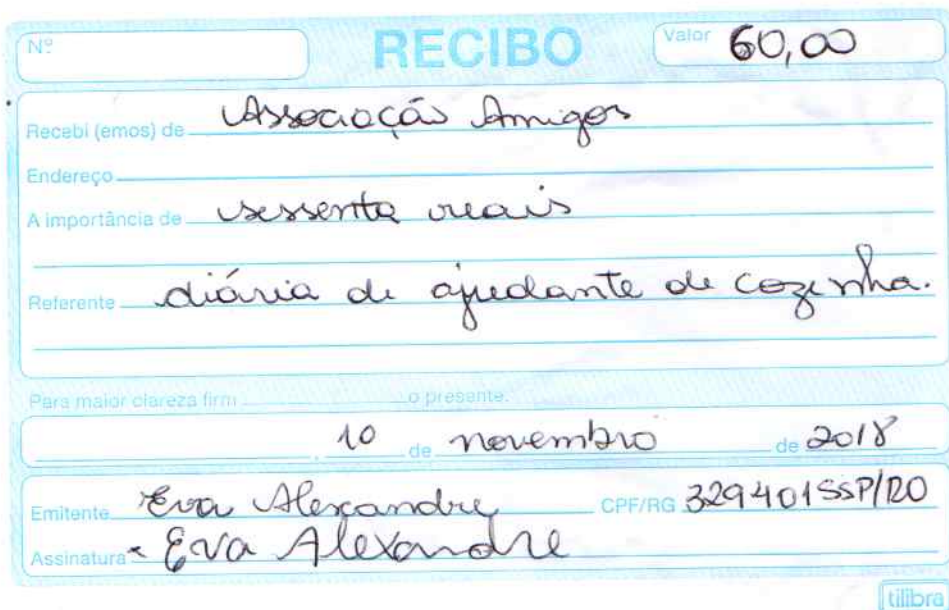 Nº RECIBO Valor 60,00
Recebi (emos) de Associação Amigos
Endereço
A importância de sessenta reais
Referente diária de ajudante de cozinha.
Para maior clareza firm o presente.
10 de novembro de 2018
Emitente Eva Alexandre CPF/RG 329401SSP/RO
Assinatura Eva Alexandre
tilibra